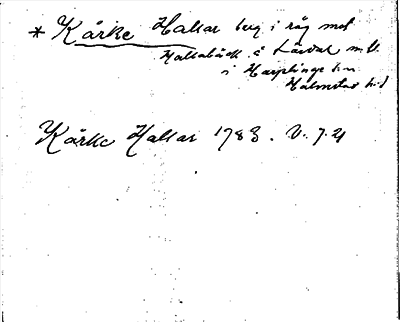 * Kårke Hallar berg i råg mot
Hallabäck o. Särdal m.fl.
i Harplinge sn
Halmstad hd
Kårke Hallar 1783. V. 7. 21